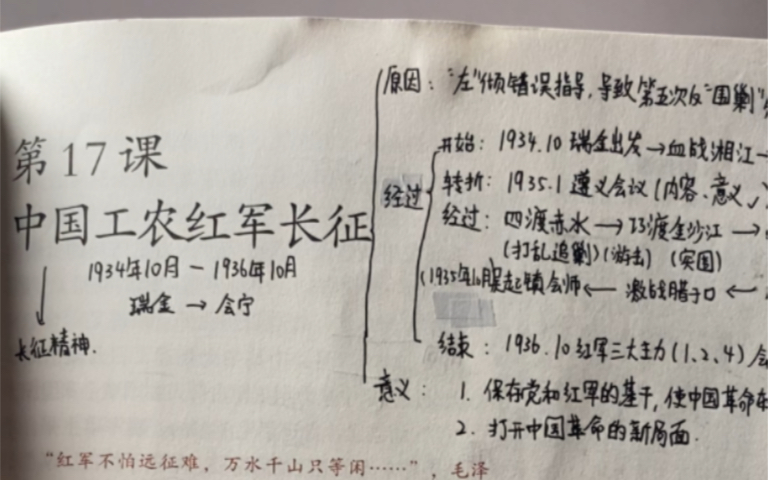 第17课
中国工农红军长征
1934年10月 - 1936年10月
瑞金 → 会宁
长征精神.
原因: "左"倾错误指导,导致第五次反"围剿"
经过
开始: 1934.10 瑞金出发→血战湘江→
转折: 1935.1 遵义会议(内容、意义√)
经过: 四渡赤水 → 巧渡金沙江 →
(打乱追剿)(游击) (突围)
(1935年10月 吴起镇会师 ← 激战腊子口 ←
结束: 1936.10 红军三大主力(1、2、4)会
意义: 1. 保存党和红军的基干,使中国革命
2. 打开中国革命的新局面.
"红军不怕远征难,万水千山只等闲……",毛泽